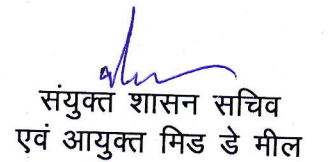 संयुक्त शासन सचिव
एवं आयुक्त मिड डे मील